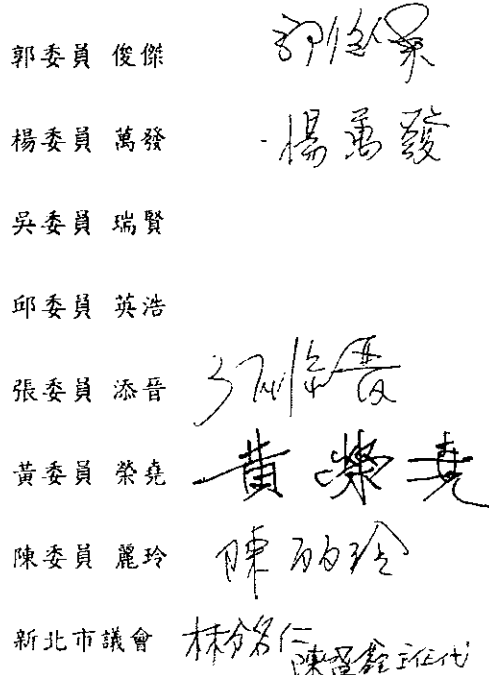 郭委員 俊傑 郭俊傑
楊委員 萬發 楊萬發
吳委員 瑞賢
邱委員 英浩
張委員 添晉 張添晉
黃委員 榮堯 黃榮堯
陳委員 麗玲 陳麗玲
新北市議會